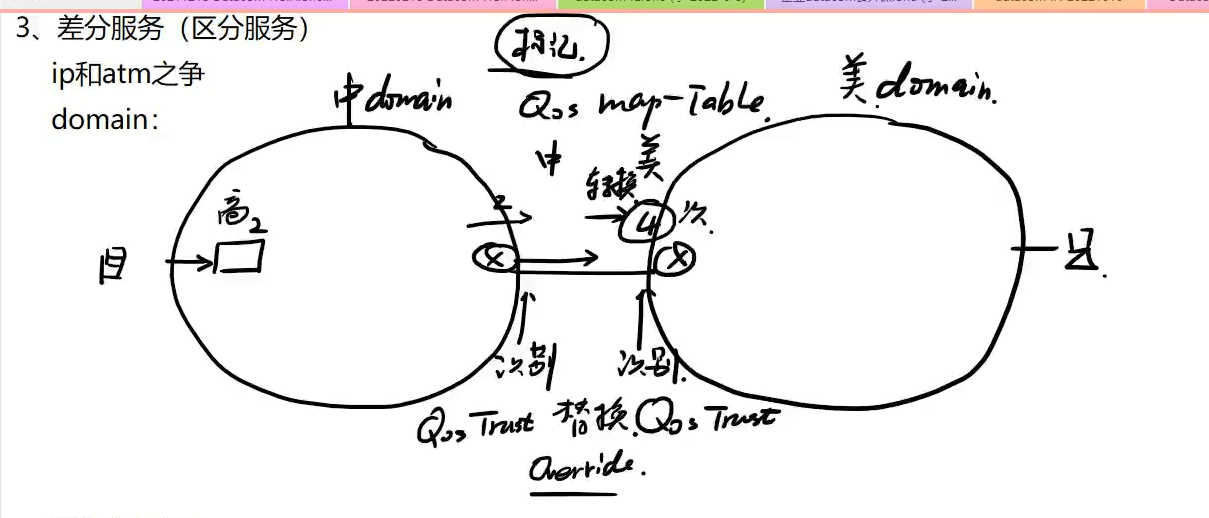 3、差分服务（区分服务）
ip和atm之争
domain：
标记.
QoS map-Table.
中domain
美.domain.
中 美
转换.
2
高2
4
次.
X
X
识别
识别.
QoS Trust 替换. QoS Trust
Override.